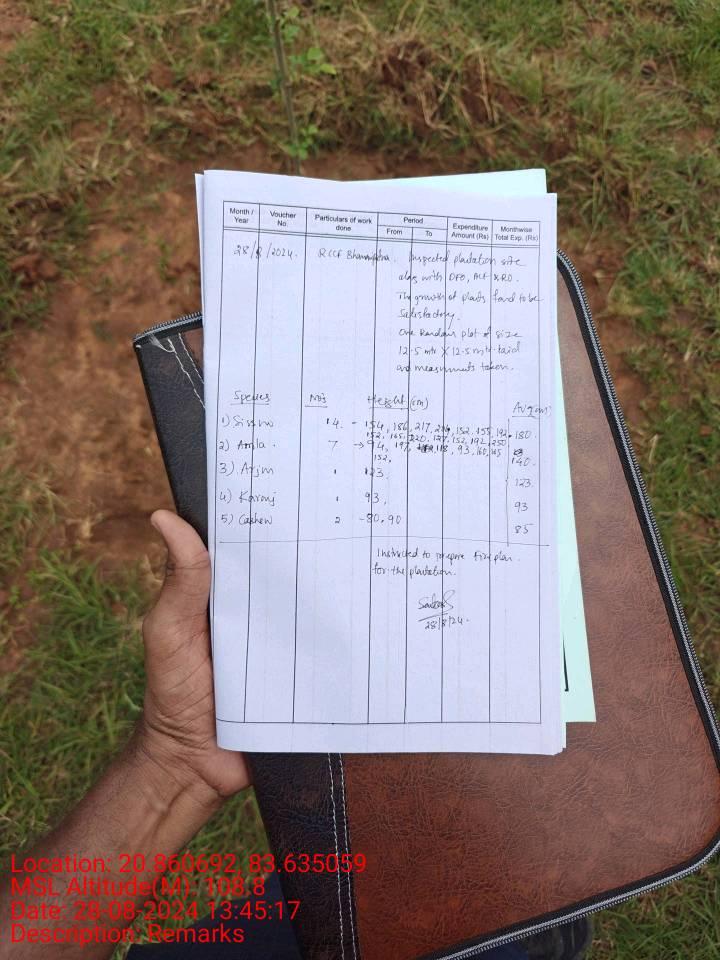 Month / Year Voucher No. Particulars of work done Period From To Expenditure Amount (Rs) Monthwise Total Exp. (Rs)
28/8/2024. RCCF Inspected plantation site
along with DFO, ACF & RO.
The growth of plants found to be
Satisfactory.
One Random plot of size
12.5 mtr X 12.5 mtr laid
and measurments taken.
Species No's Height (cm) Avg(cm)
1) Sissoo 14 - 154, 186, 217, 152, 155, 192. 180
152, 165, 220, 127, 152, 192, 250
2) Amla. 7 → 94, 197, 118, 93, 160, 165 140.
152,
3) Arjun 1 123. 123
4) Karanj 1 93. 93
5) Cashew 2 - 80, 90 85
Instructed to prepare Fire plan.
for the plantation.
28/8/24.
Location: 20.860692, 83.635059
MSL Altitude(M): 108.8
Date: 28-08-2024 13:45:17
Description: Remarks